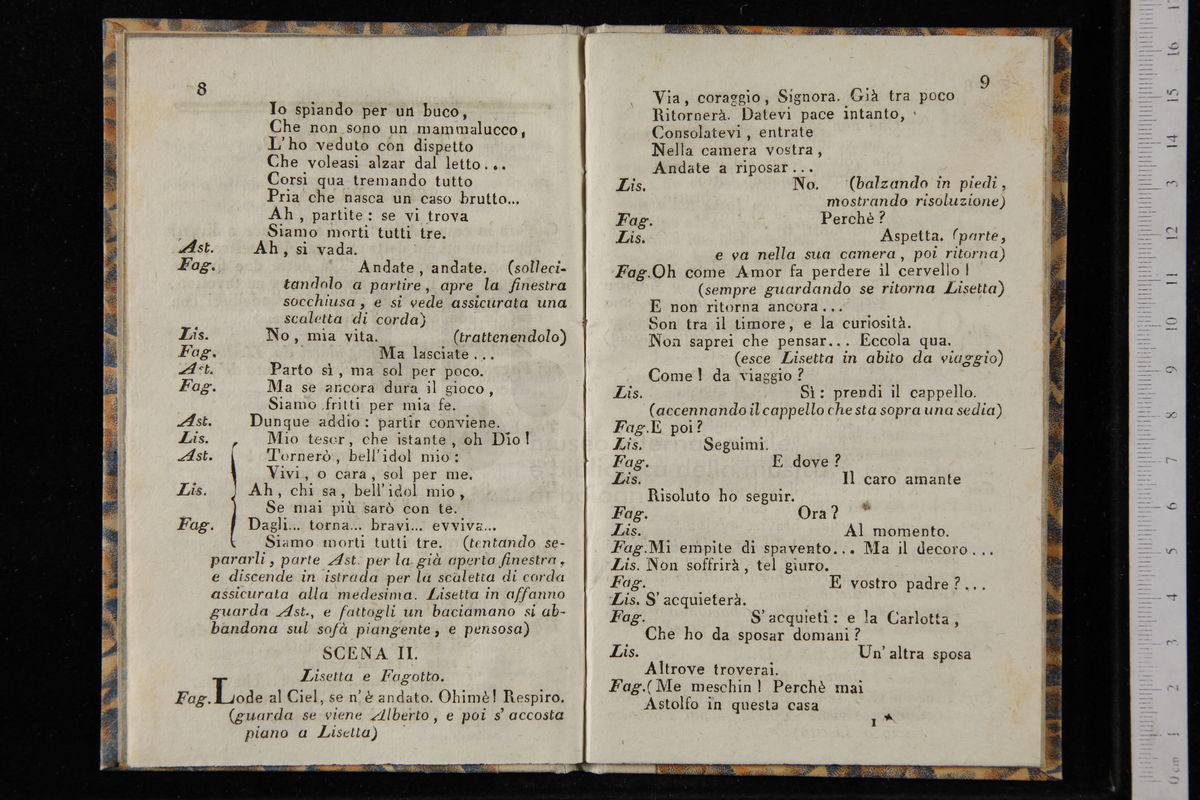 8
Io spiando per un buco,
Che non sono un mammalucco,
L'ho veduto con dispetto
Che voleasi alzar dal letto...
Corsi qua tremando tutto
Pria che nasca un caso brutto...
Ah, partite: se vi trova
Siamo morti tutti tre.
Ast. Ah, si vada.
Fag. Andate, andate. (solleci-
tandolo a partire, apre la finestra
socchiusa, e si vede assicurata una
scaletta di corda)
Lis. No, mia vita. (trattenendolo)
Fag. Ma lasciate...
Ast. Parto sì, ma sol per poco.
Fag. Ma se ancora dura il gioco,
Siamo fritti per mia fe.
Ast. Dunque addio: partir conviene.
Lis. Mio tesor, che istante, oh Dio!
Ast. Tornerò, bell'idol mio:
Vivi, o cara, sol per me.
Lis. Ah, chi sa, bell'idol mio,
Se mai più sarò con te.
Fag. Dagli... torna... bravi... evviva...
Siamo morti tutti tre. (tentando se-
pararli, parte Ast. per la già aperta finestra,
e discende in istrada per la scaletta di corda
assicurata alla medesima. Lisetta in affanno
guarda Ast., e fattogli un baciamano si ab-
bandona sul sofà piangente, e pensosa)
SCENA II.
Lisetta e Fagotto.
Fag. Lode al Ciel, se n'è andato. Ohimè! Respiro.
(guarda se viene Alberto, e poi s'accosta
piano a Lisetta)
9
Via, coraggio, Signora. Già tra poco
Ritornerà. Datevi pace intanto,
Consolatevi, entrate
Nella camera vostra,
Andate a riposar...
Lis. No. (balzando in piedi,
mostrando risoluzione)
Fag. Perchè?
Lis. Aspetta. (parte,
e va nella sua camera, poi ritorna)
Fag. Oh come Amor fa perdere il cervello!
(sempre guardando se ritorna Lisetta)
E non ritorna ancora...
Son tra il timore, e la curiosità.
Non saprei che pensar... Eccola qua.
(esce Lisetta in abito da viaggio)
Come! da viaggio?
Lis. Sì: prendi il cappello.
(accennando il cappello che sta sopra una sedia)
Fag. E poi?
Lis. Seguimi.
Fag. E dove?
Lis. Il caro amante
Risoluto ho seguir.
Fag. Ora?
Lis. Al momento.
Fag. Mi empite di spavento... Ma il decoro...
Lis. Non soffrirà, tel giuro.
Fag. E vostro padre?...
Lis. S'acquieterà.
Fag. S'acquieti: e la Carlotta,
Che ho da sposar domani?
Lis. Un'altra sposa
Altrove troverai.
Fag. (Me meschin! Perchè mai
Astolfo in questa casa
1 *